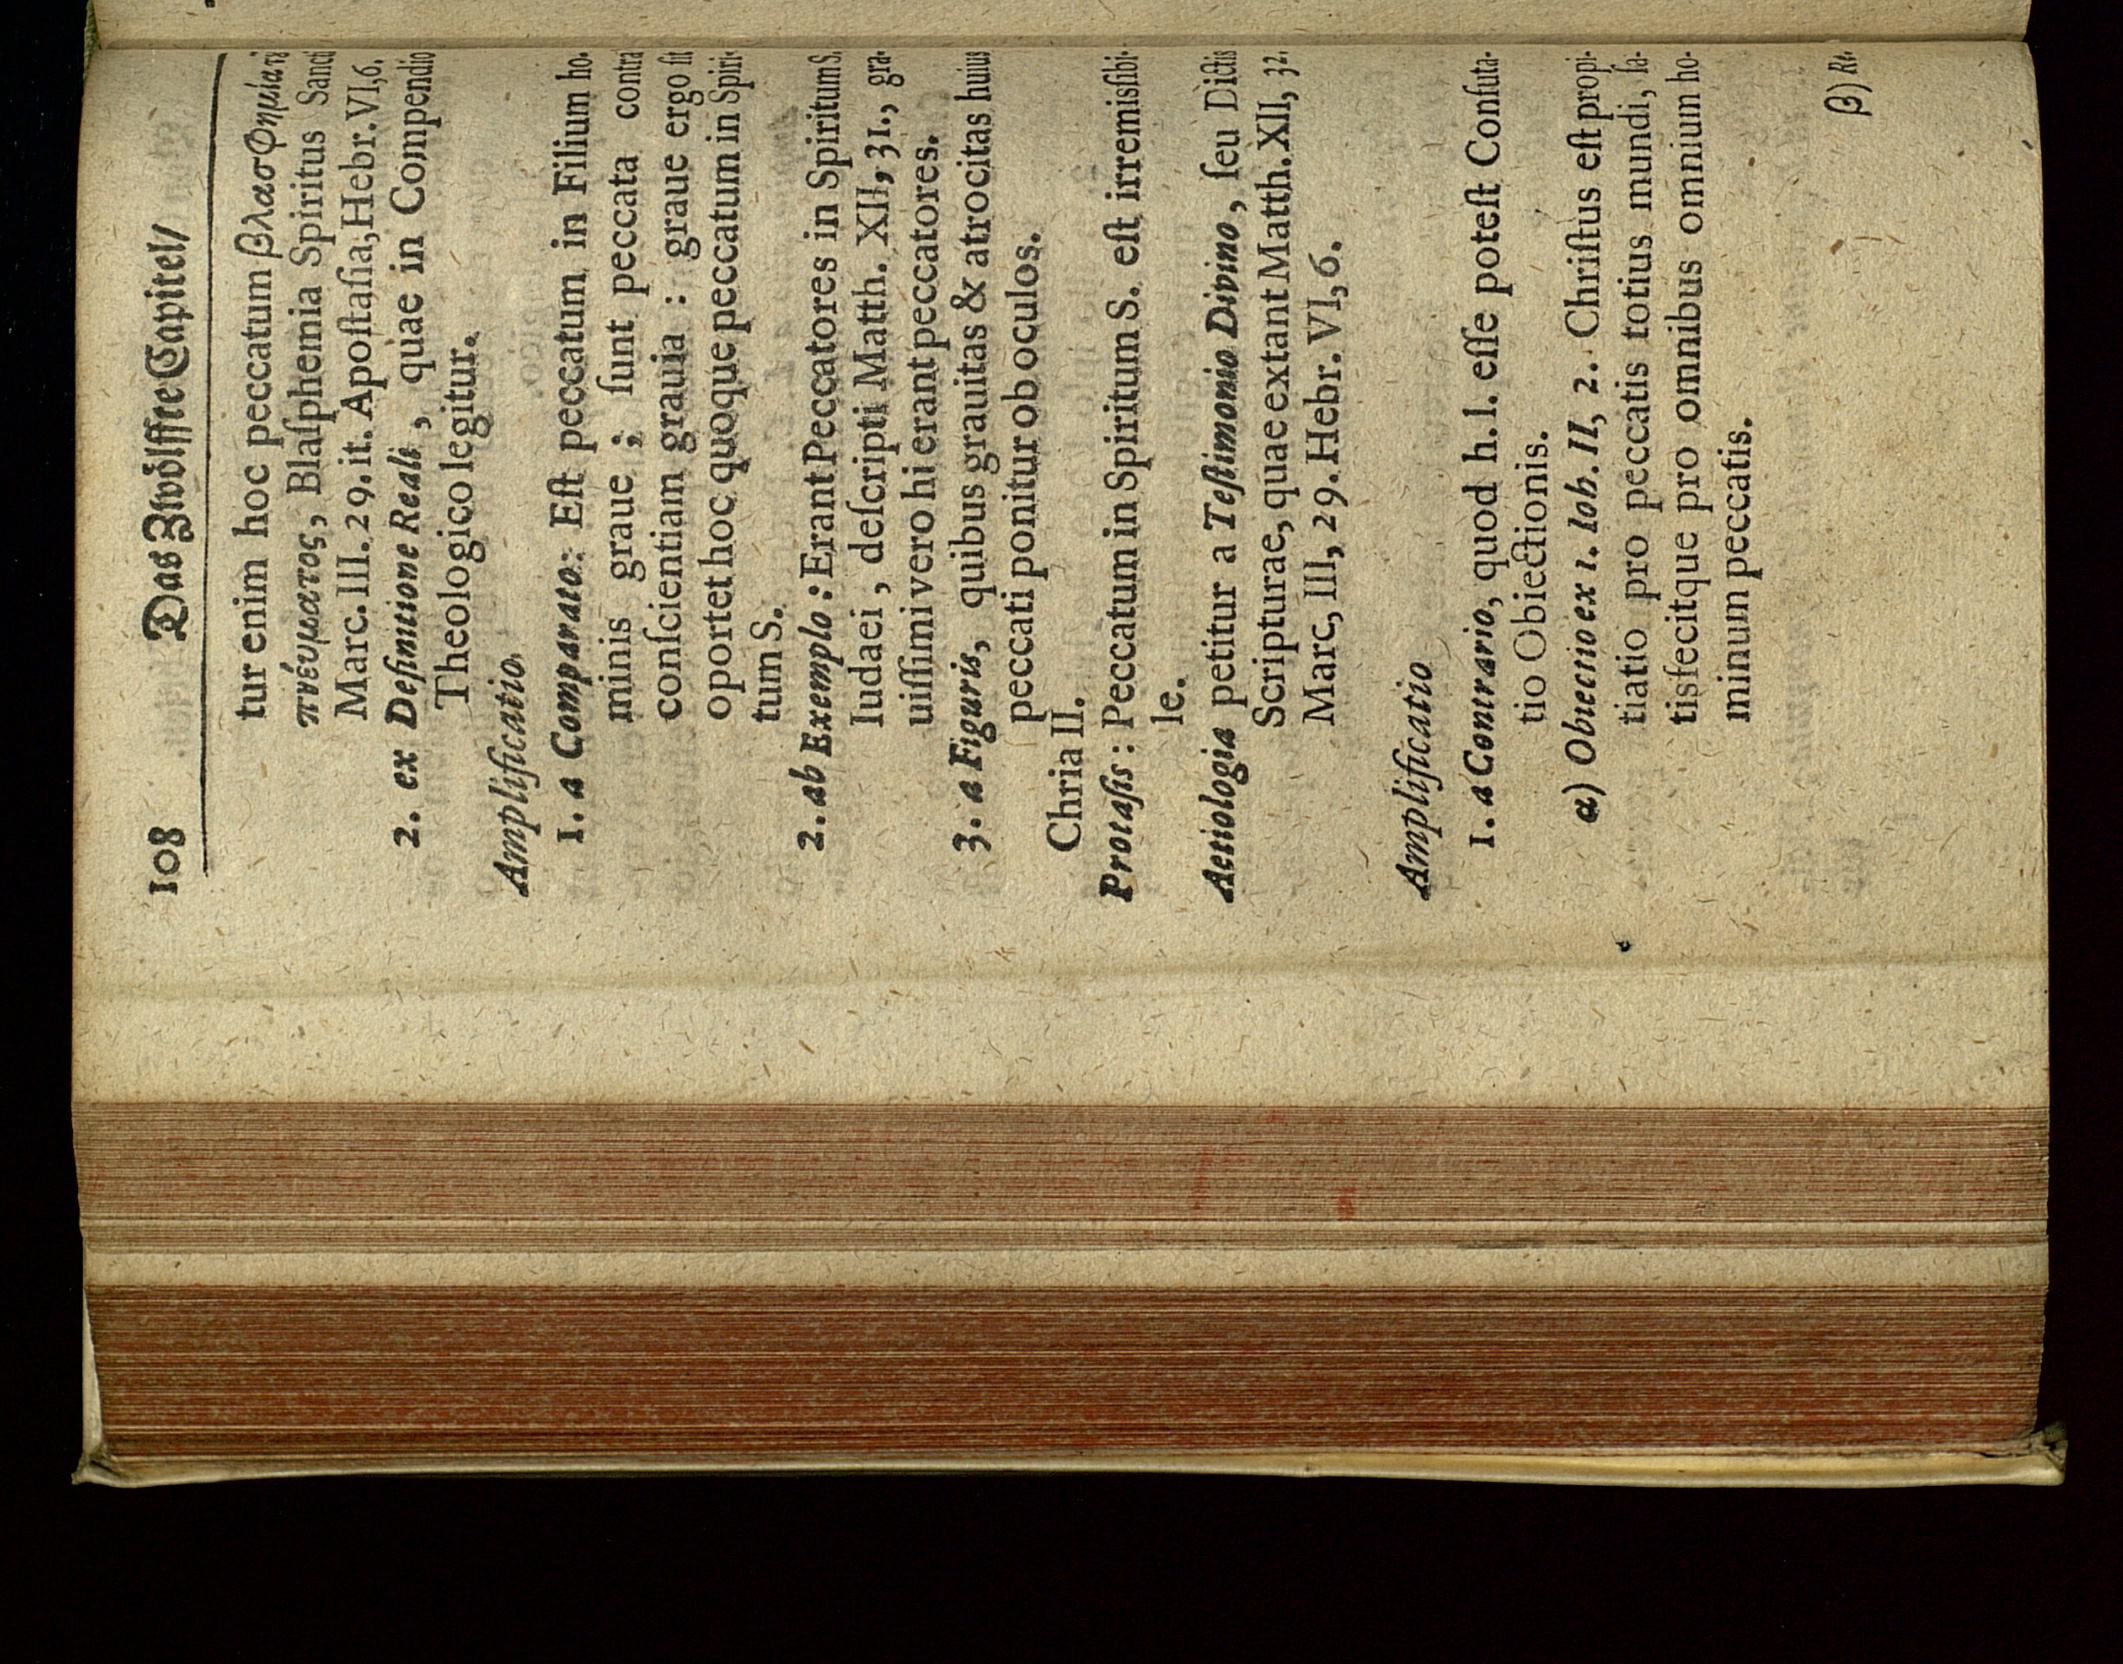 108 Das Zwölffte Capitel/
tur enim hoc peccatum βλασφημία τȣ͂
πνέυματος, Blaſphemia Spiritus Sancti
Marc. III. 29. it. Apoſtaſia, Hebr. VI, 6.
2. ex Definitione Reali, quae in Compendio
Theologico legitur.
Amplificatio
1. a Comparato: Eſt peccatum in Filium ho-
minis graue; ſunt peccata contra
conſcientiam grauia: graue ergo ſit
oportet hoc quoque peccatum in Spiri-
tum S.
2. ab Exemplo: Erant Peccatores in Spiritum S.
Iudaei, deſcripti Matth. XII, 31., gra-
uiſſimi vero hi erant peccatores.
3. a Figuris, quibus grauitas & atrocitas huius
peccati ponitur ob oculos.
Chria II.
Protaſis: Peccatum in Spiritum S. eſt irremisſibi-
le.
Aetiologia petitur a Teſtimonio Divino, ſeu Dictis
Scripturae, quae extant Matth. XII, 32.
Marc, III, 29. Hebr. VI, 6.
Amplificatio
1. a Contrario, quod h. l. eſſe poteſt Confuta-
tio Obiectionis.
α) Obiectio ex 1. Ioh. II, 2. Chriſtus eſt propi-
tiatio pro peccatis totius mundi, ſa-
tisfecitque pro omnibus omnium ho-
minum peccatis.
β) Re-